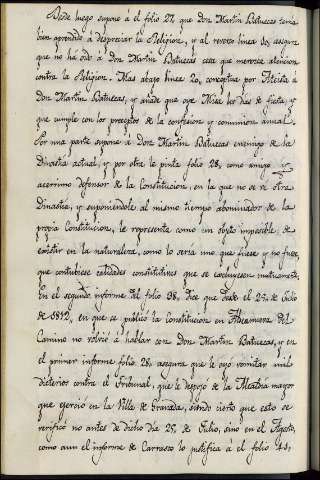 Desde luego supone á el folio 27, que Don Martin Batuecas tenia
bien aprendido á despreciar la Religion, y al reverso linea 30, asegura
que no há oido á Don Martin Batuecas cosa que merezca atencion
contra la Religion. Mas abajo linea 20, conceptua por Ateista á
Don Martin Batuecas, y añade que oye Misa los dias de fiesta, y
que cumple con los preceptos de la confesion y comunion anual.
Por una parte supone á Don Martin Batuecas enemigo de la
Dinastia actual, y por otra le pinta folio 28, como amigo y
acerrimo defensor de la Constitucion, en la que no se vé otra
Dinastia, y suponiendole al mismo tiempo abominador de la
propia Constitucion, le representa como un objeto imposible, de
existir en la naturaleza, como lo seria uno que fuese y no fuese,
que contubiese calidades constitutivas que se excluyesen mutuamente.
En el segundo informe del folio 38, dice que desde el 25, de Julio
de 1812, en que se publicó la Constitucion en Aldeanueva del
Camino no volvió á hablar con Don Martin Batuecas, y en
el primer informe folio 28, asegura que le oyó vomitar mil
dicterios contra el Tribunal, que le despojó de la Alcaldia mayor
que ejerció en la Villa de Granada, siendo cierto que esto se
verificó no antes de dicho dia 25 de Julio, sino en el Agosto,
como aun el informe de Carrasco lo justifica á el folio 43,